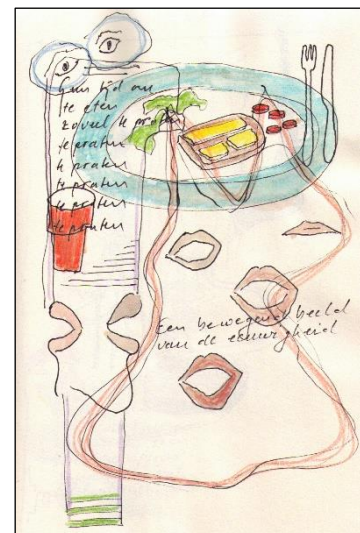 Geen tijd om
te eten
zoveel te praten
te praten
te praten
te praten
te praten
te praten
Een bewegend beeld
van de eeuwigheid